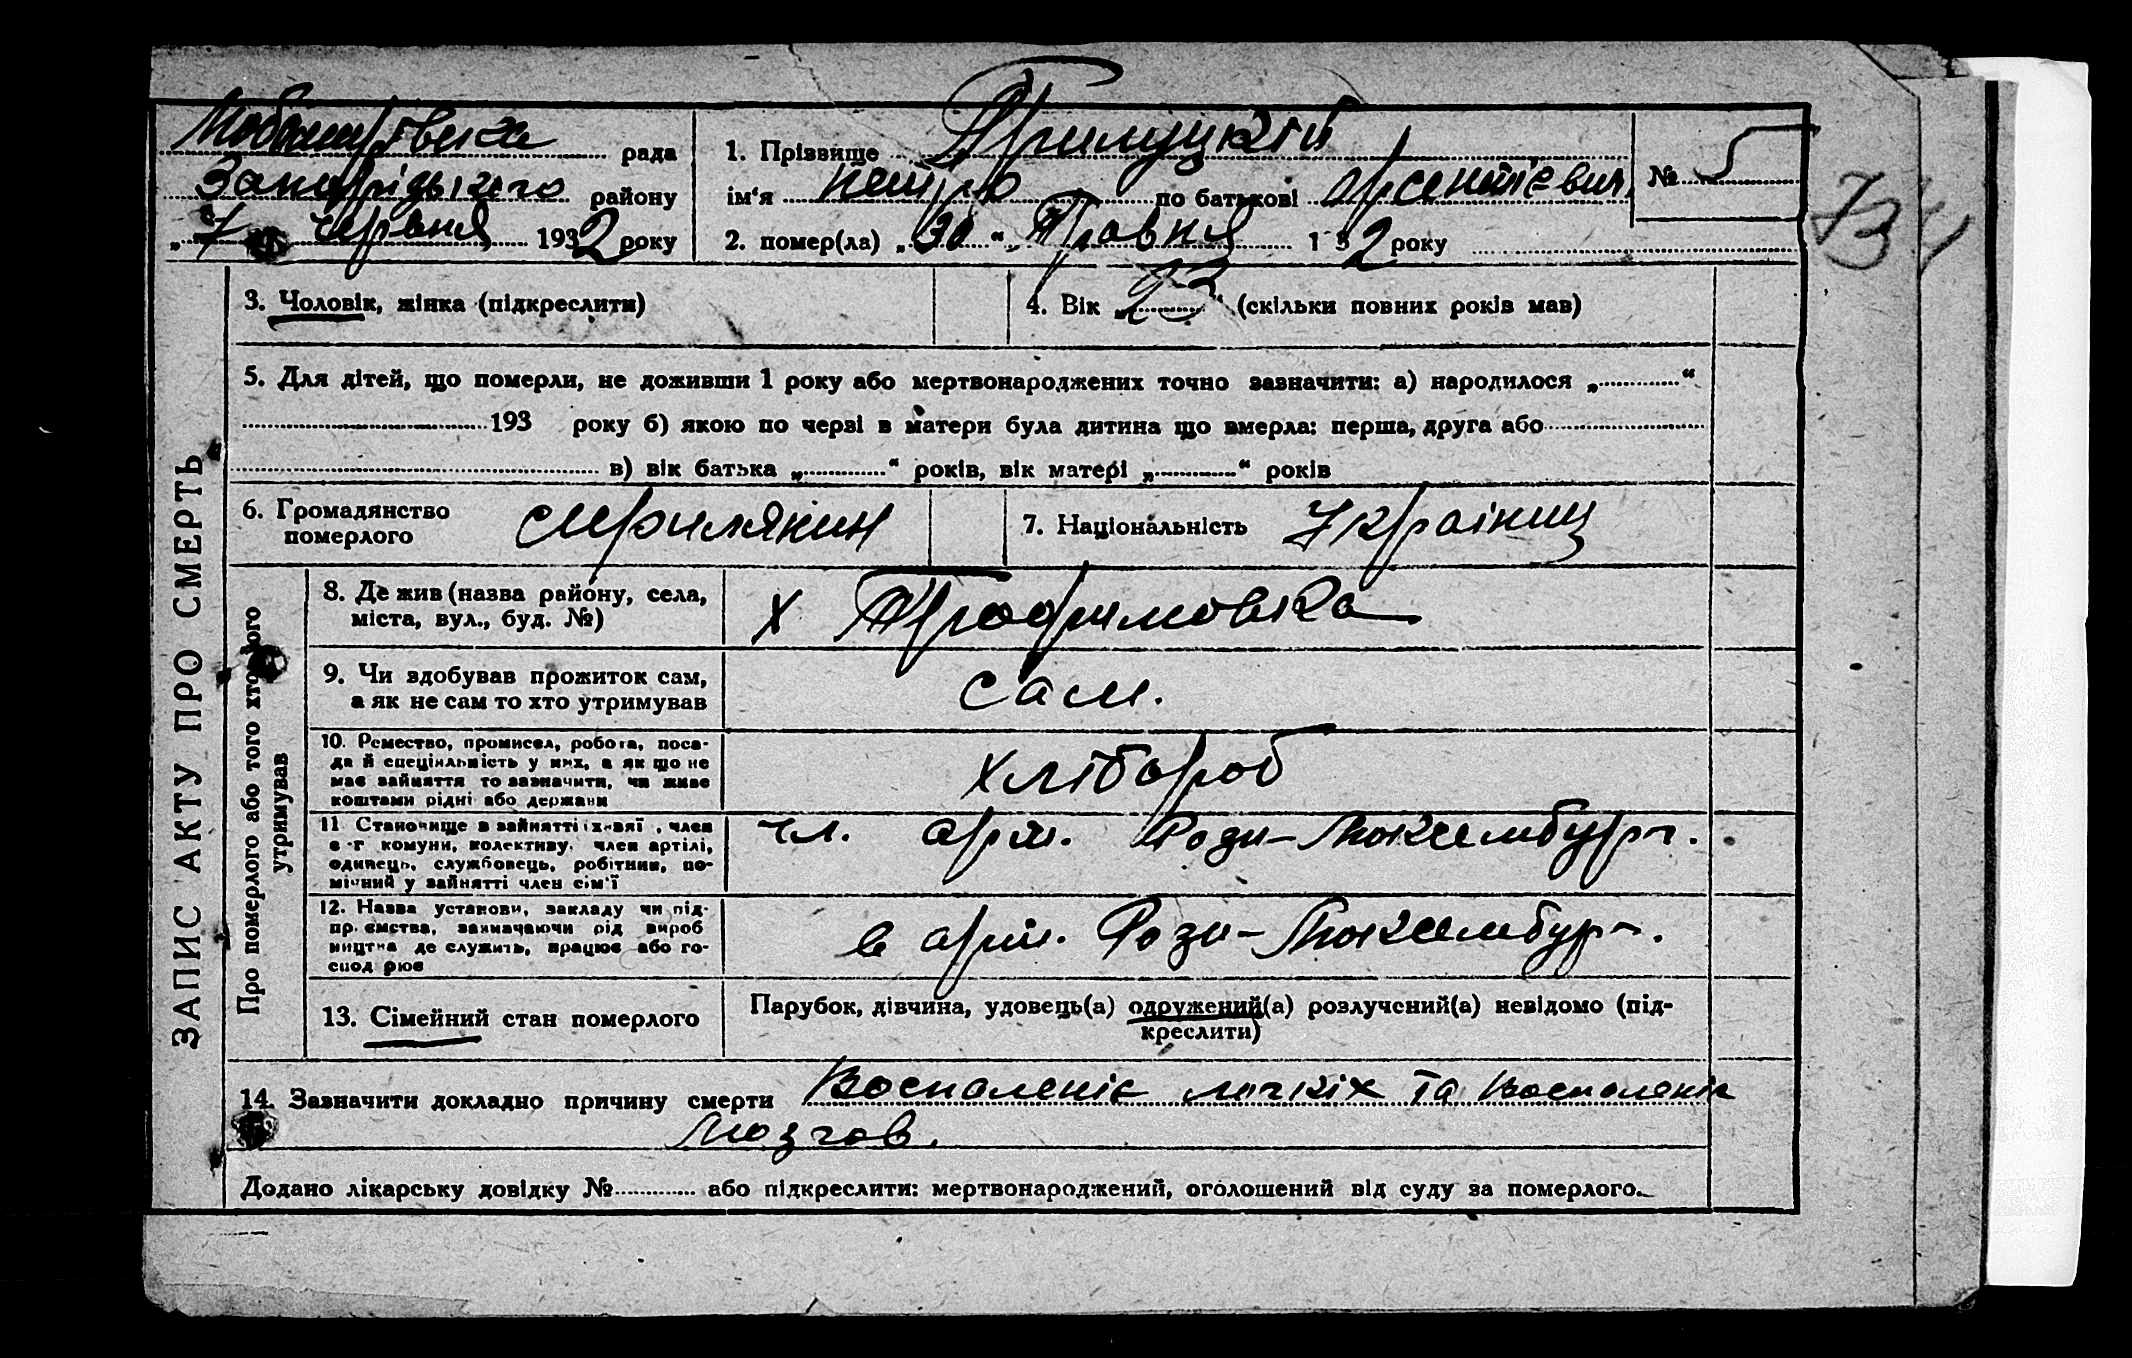 рада
Запорізького району
„7“ червня 1932 року
1. Прізвище Прилуцкій
ім'я Петро по батькові Арсентієвич
№ 5
2. помер(ла) „30“ Травня 1 3 2 року
73
3. Чоловік, жінка (підкреслити)
4. Вік „23“ (скільки повних років мав)
5. Для дітей, що померли, не доживши 1 року або мертвонароджених точно зазначити: а) народилося „ “
193 року б) якою по черзі в матери була дитина що вмерла: перша, друга або
в) вік батька „ “ років, вік матері „ “ років
6. Громадянство померлого
7. Національність Українец
ЗАПИС АКТУ ПРО СМЕРТЬ
Про померлого або того хто його утримував
8. Де жив (назва району, села,
міста, вул., буд. №)
х Трофимовка
9. Чи здобував прожиток сам,
а як не сам то хто утримував
сам.
10. Ремество, промисел, робота, поса-
да й спеціяльність у них, а як що не
має зайняття то зазначити, чи живе
коштами рідні або держави
хлібороб
11 Становище в зайнятті член
с-г комуни, колективу, член артілі,
одинець, службовець, робітник, по-
мічний у зайнятті член сім'ї
чл. арт. Рози-Люксембург.
12. Назва установи, закладу чи під-
пр. ємства, зазначаючи рід вироб
ництва де служить, працює або го-
спод рює
в арт. Рози-Люксембург.
13. Сімейний стан померлого
Парубок, дівчина, удовець(а) одружений(а) розлучений(а) невідомо (під-
креслити)
14. Зазначити докладно причину смерти Воспаленіє легкіх та Воспаленіє
Мозгов.
Додано лікарську довідку № або підкреслити: мертвонароджений, оголошений від суду за померлого.